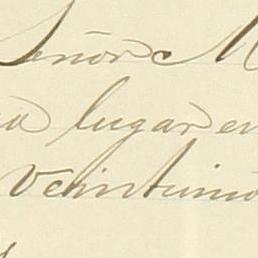 Señor M
a lugar en
Veintiuno